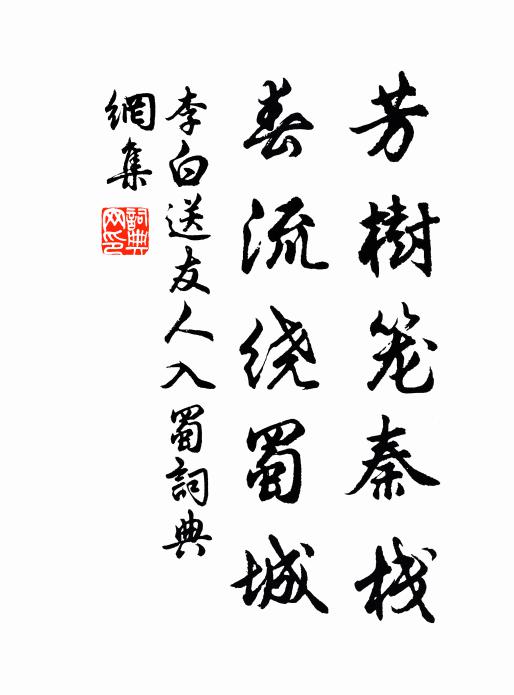 芳樹笼秦栈
春流绕蜀城
李白送友人入蜀詞典
網集
詞典网印